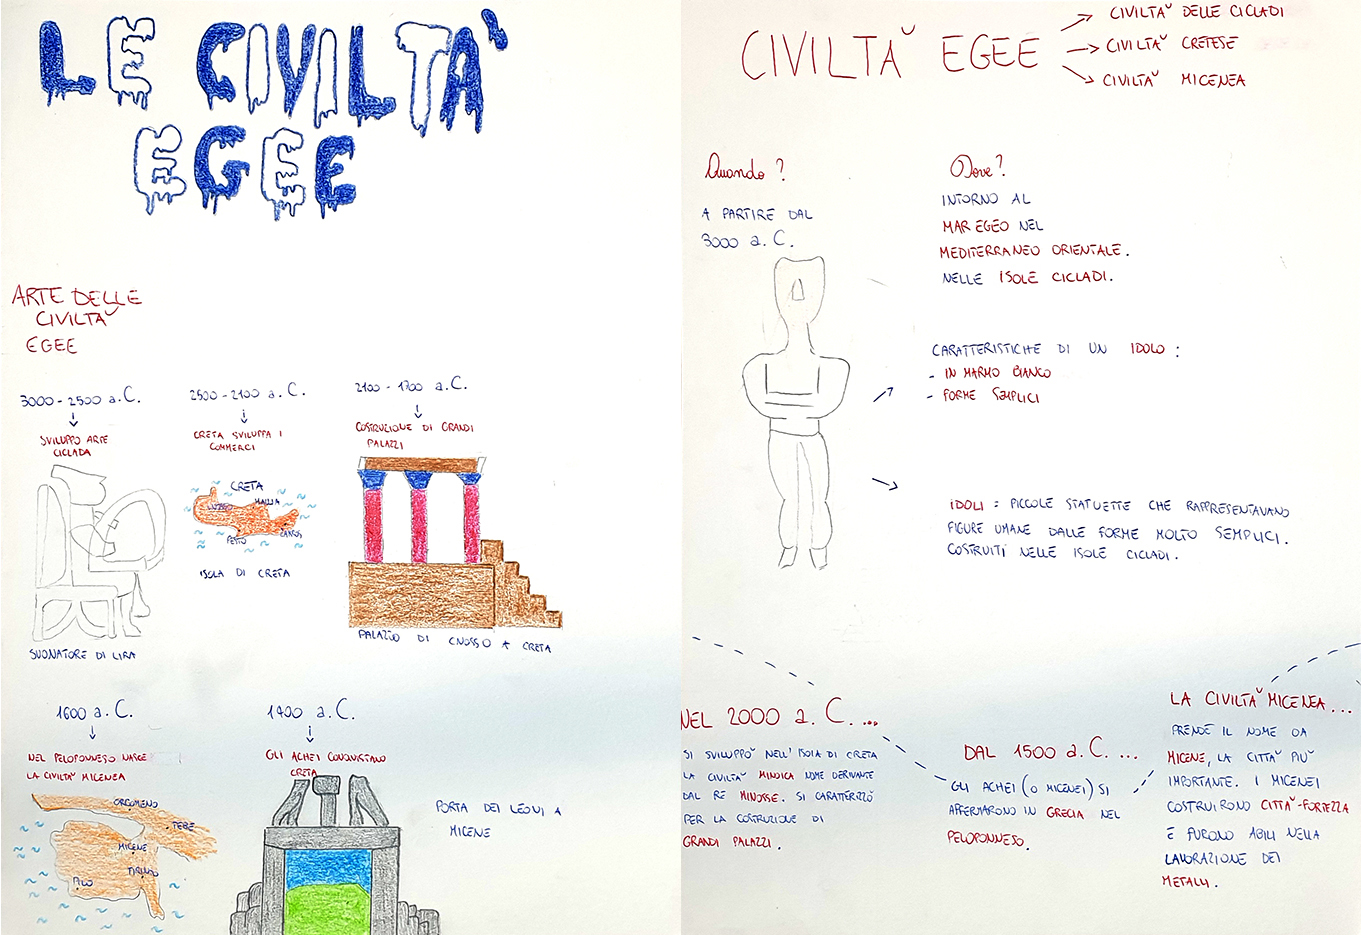 LE CIVILTÀ
EGEE
ARTE DELLE
CIVILTÀ
EGEE
3000-2500 a.C.
SVILUPPO ARTE
CICLADA
SUONATORE DI LIRA
2500-2100 a.C.
CRETA SVILUPPA I
COMMERCI
CRETA
MALLIA
FESTO
ISOLA DI CRETA
2100-1700 a.C.
COSTRUZIONE DI GRANDI
PALAZZI
PALAZZO DI CNOSSO A CRETA
1600 a.C.
NEL PELOPONNESO NASCE
LA CIVILTÀ MICENEA
ORCOMENO
TEBE
MICENE
TIRINSO
PILO
1400 a.C.
GLI ACHEI CONQUISTANO
CRETA
PORTA DEI LEONI A
MICENE
CIVILTÀ EGEE
CIVILTÀ DELLE CICLADI
CIVILTÀ CRETESE
CIVILTÀ MICENEA
Quando?
A PARTIRE DAL
3000 a.C.
Dove?
INTORNO AL
MAR EGEO NEL
MEDITERRANEO ORIENTALE.
NELLE ISOLE CICLADI.
CARATTERISTICHE DI UN IDOLO:
- IN MARMO BIANCO
- FORME SEMPLICI
IDOLI: PICCOLE STATUETTE CHE RAPPRESENTAVANO
FIGURE UMANE DALLE FORME MOLTO SEMPLICI.
COSTRUITI NELLE ISOLE CICLADI.
NEL 2000 a.C....
SI SVILUPPÒ NELL'ISOLA DI CRETA
LA CIVILTÀ MINOICA NOME DERIVANTE
DAL RE MINOSSE. SI CARATTERIZZÒ
PER LA COSTRUZIONE DI
GRANDI PALAZZI.
DAL 1500 a.C....
GLI ACHEI (O MICENEI) SI
AFFERMARONO IN GRECIA NEL
PELOPONNESO.
LA CIVILTÀ MICENEA...
PRENDE IL NOME DA
MICENE, LA CITTÀ PIÙ
IMPORTANTE. I MICENEI
COSTRUIRONO CITTÀ-FORTEZZA
E FURONO ABILI NELLA
LAVORAZIONE DEI
METALLI.